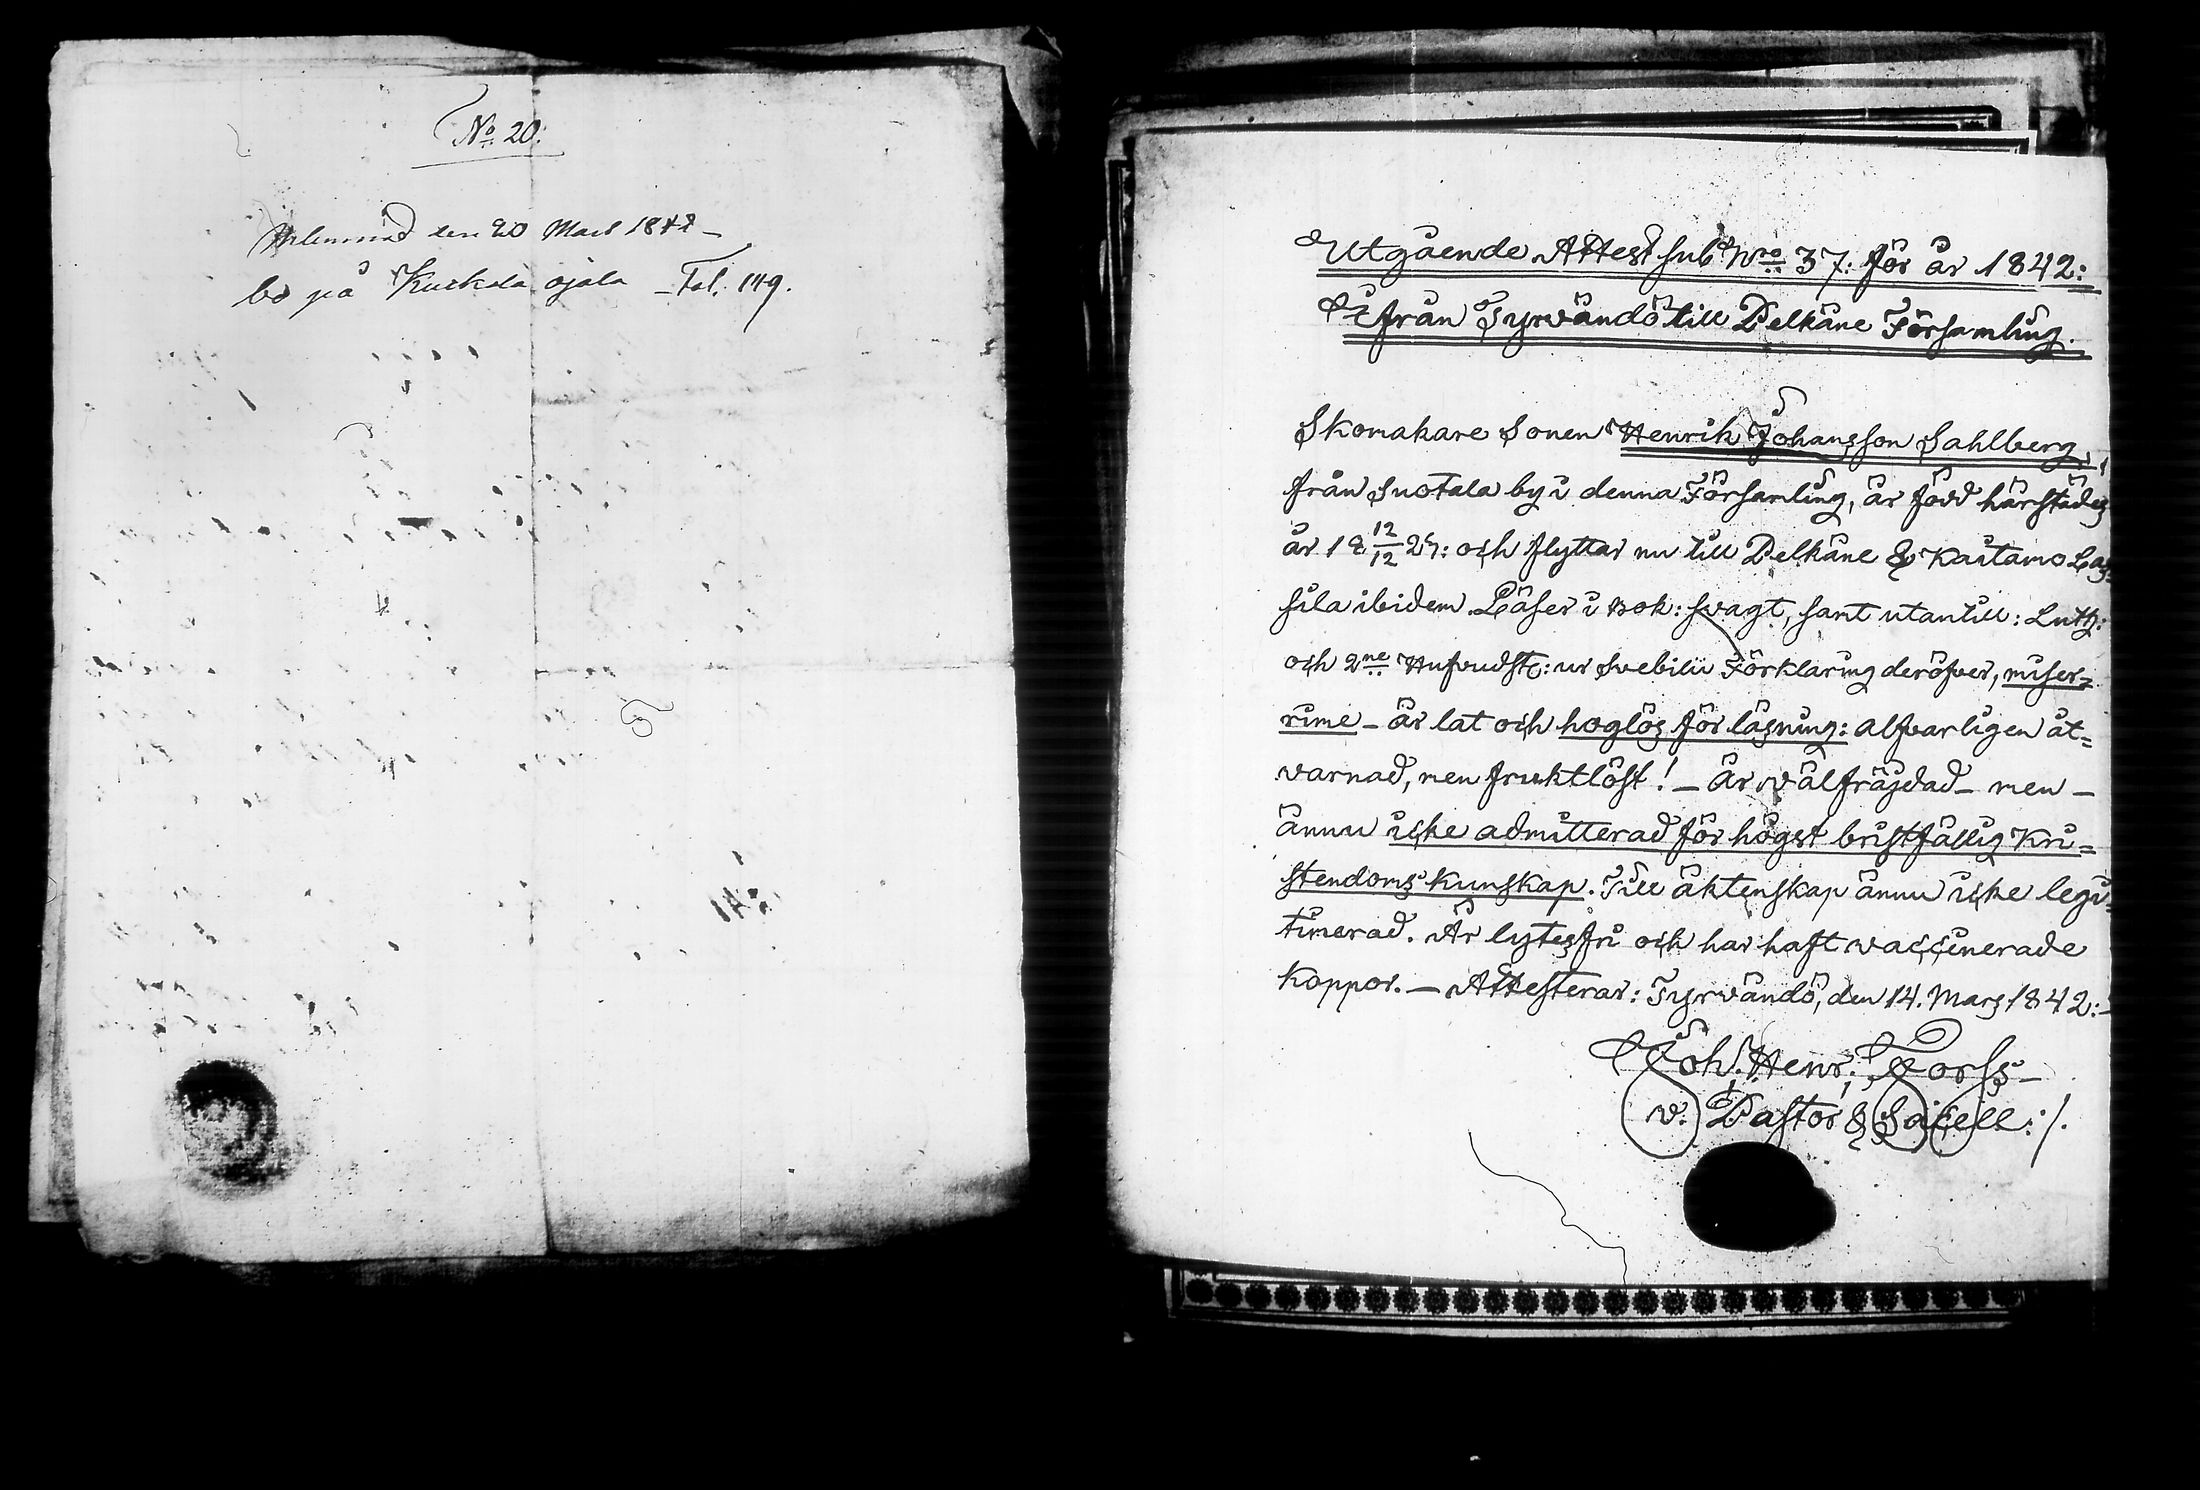 No 20.
den 20 Mars 1842 –
bo på Kuckola ojala – Fol. 149.
Utgående Attest sub Nro 37: för år 1842:
Ifrån Tyrvändö till Pelkäne Församling.
Skomakare Sonen Henrik Johansson Sahlberg,
från Suotala by i denna Församling, är född härstädes
år 18 12/12 25: och flyttar nu till Pelkäne & Kaitamo Las=
sila ibidem. Läser i Bok: svagt, samt utantill: Luth:
och 2ne Hufvudst: ur Svebilii Förklaring deröfver, miser=
rime – är lat och hoglös för läsning: alfvarligen åt=
varnad, men fruktlöst! – Är välfräjdad – men –
ännu icke admitterad för högst bristfällig Kri=
stendoms kunskap. Till äktenskap ännu icke legi=
timerad. Är lytesfri och har haft vaccinerade
koppor. – Attesterar: Tyrvändö, den 14. Mars 1842: –
Joh. Henr: Forss –
v. Pastor & Sacell: /.